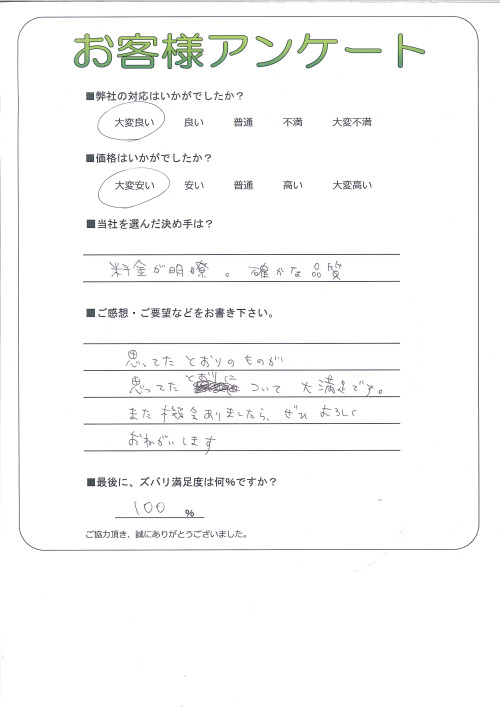 お客様アンケート
■弊社の対応はいかがでしたか？
大変良い 良い 普通 不満 大変不満
■価格はいかがでしたか？
大変安い 安い 普通 高い 大変高い
■当社を選んだ決め手は？
料金が明瞭。確かな品質
■ご感想・ご要望などをお書き下さい。
思ってたとおりのものが
思ってたとおりに ついて 大満足です。
また機会ありましたら、ぜひ よろしく
おねがいします
■最後に、ズバリ満足度は何%ですか？
100 %
ご協力頂き、誠にありがとうございました。